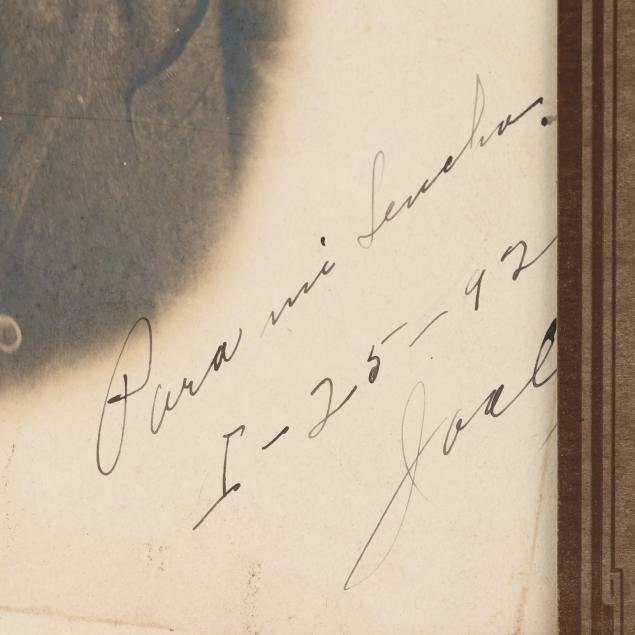 Para mi Lencha.
I-25-92
Joal